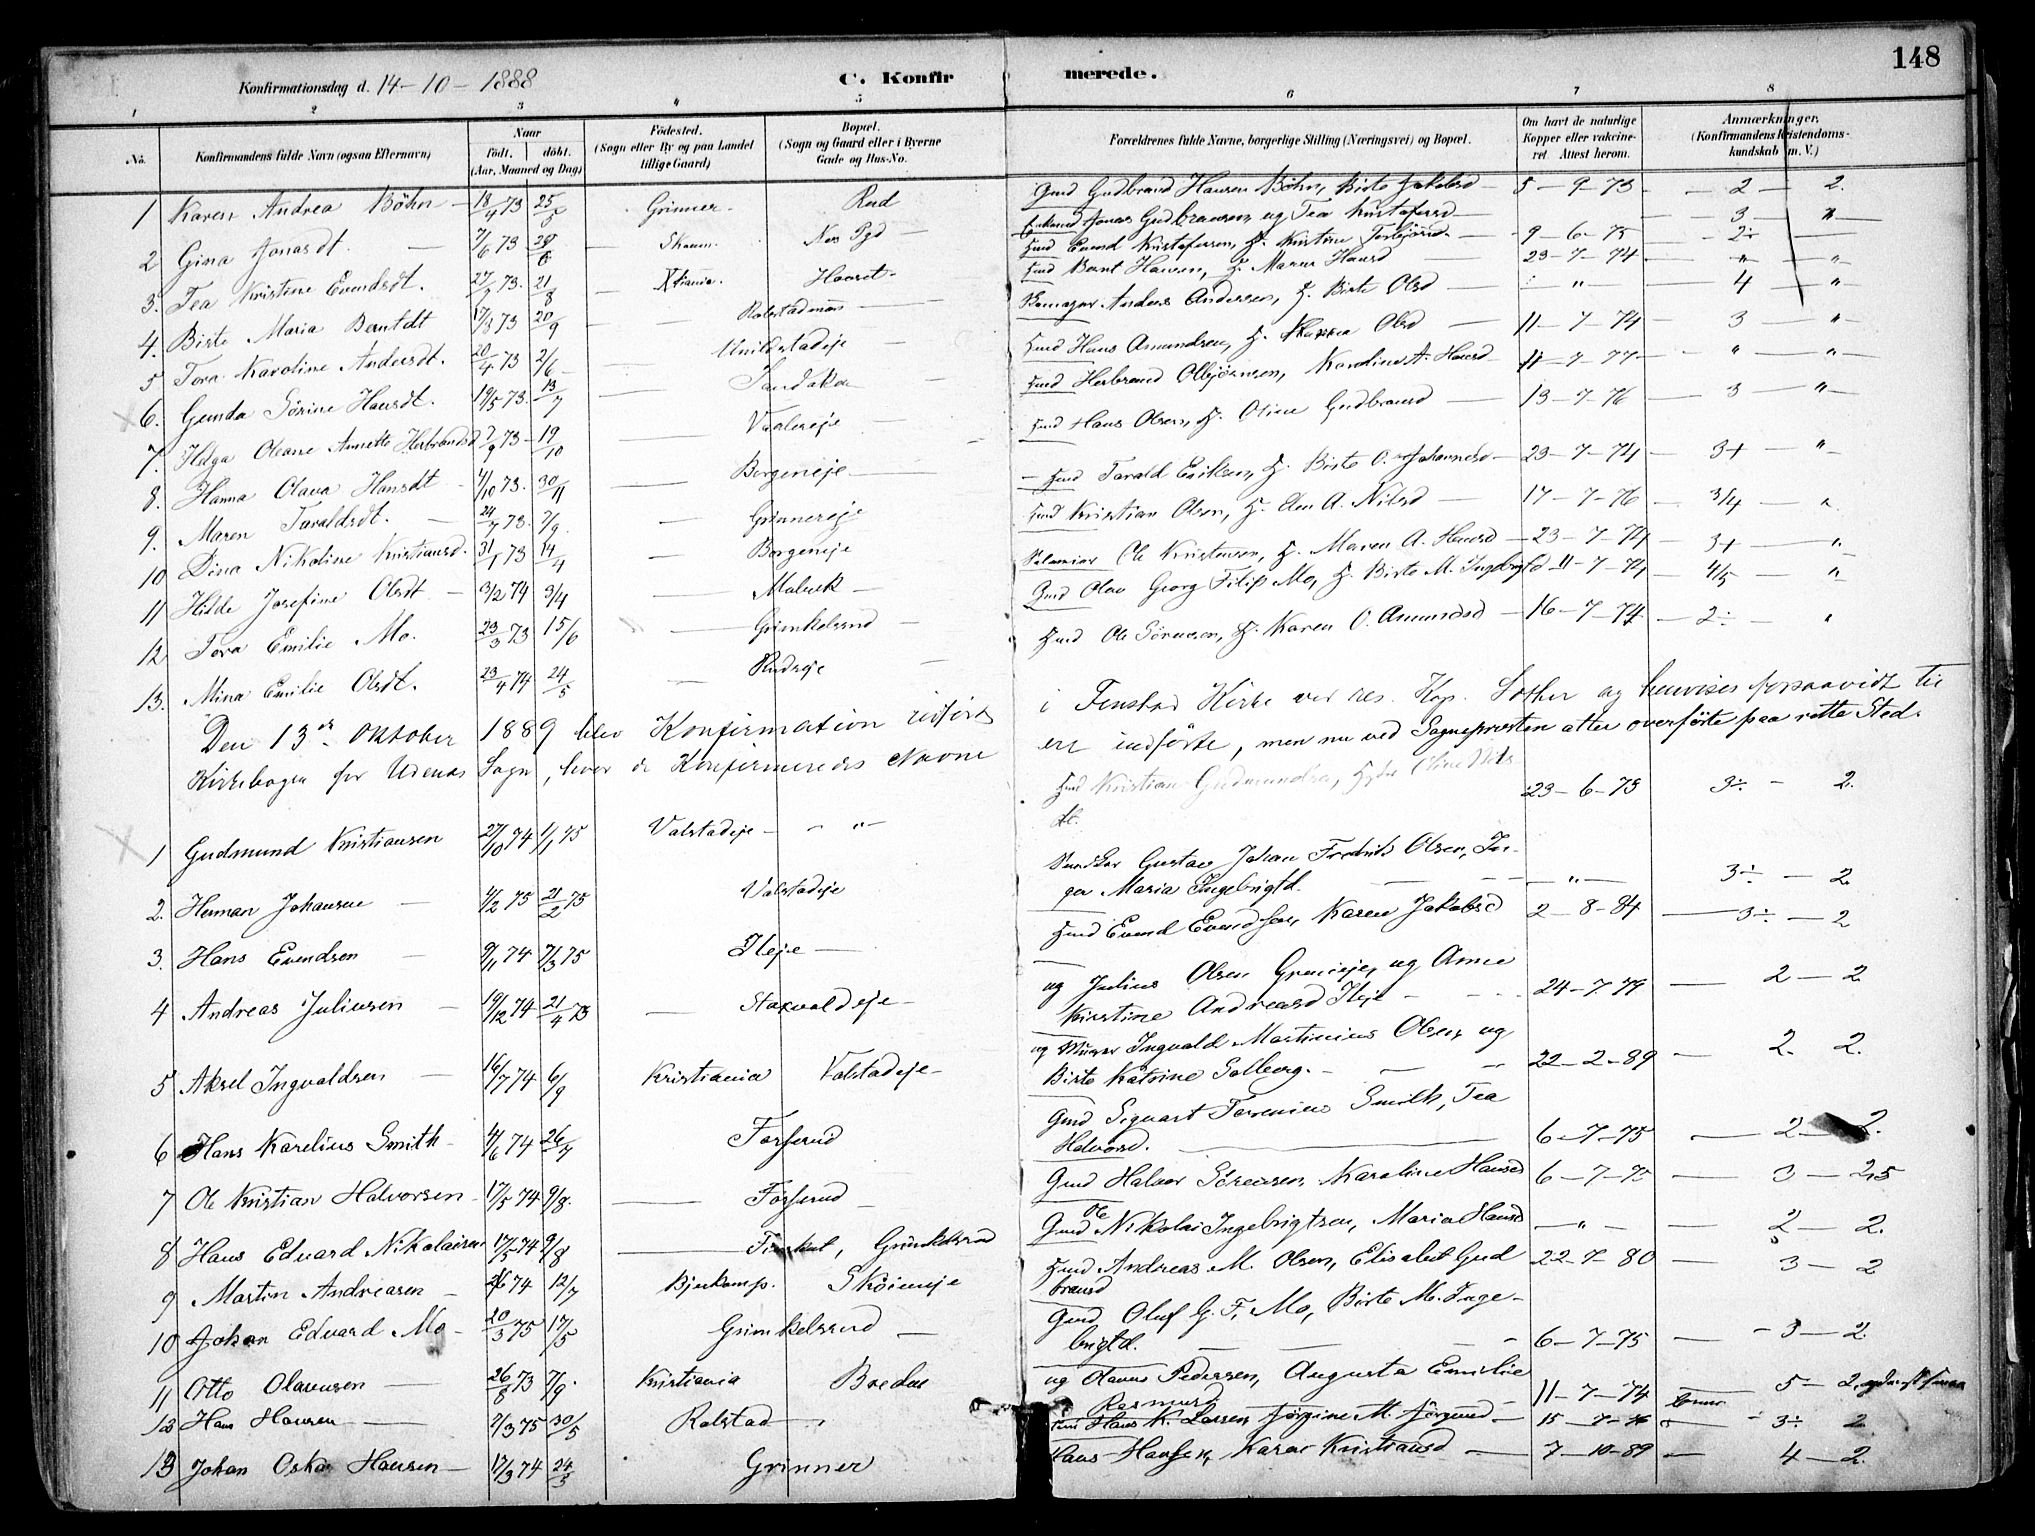 148
Konfirmationsdag d. 14-10-1888 C. Konfirmerede.
1 2 3 4 5 6 7 8
No.
Konfirmandens fulde Navn (ogsaa Efternavn)
Naar
født. døbt.
(Aar, Maaned og Dag)
Fødested.
(Sogn eller By og paa Landet
tillige Gaard)
Bopæl.
(Sogn og Gaard eller i Byerne
Gade og Hus-No.
Forældrenes fulde Navne, borgerlige Stilling (Næringsvei) og Bopæl.
Om havt de naturlige
Kopper eller vakcine-
ret. Attest herom.
Anmærkninger.
(Konfirmandens Kristendoms-
kundskab m. V.)
1 Karen Andrea Bøhn 18/4 73 25/5 Grinner Rud Gmd Gudbrand Hansen Bøhn, Birte Jakobsd 5-9-73 2 2.
2 Gina Jonasdt. 7/6 73 Skoun. Nes Pgd Jonas Gudbransen og Tea Kristofersd 3 "
3. Tea Kristine Evendsdt. 27/7 73. 21/8 Xtiania. Evend Kristofersen, H. Kristine Torbjørnsd. 9-6-75 2÷
4. Birte Maria Berntdt 17/8 73 20/9 Rolstadmoen Hmd Bernt Hansen, H. Maren Hansd 23-7-74 " "
5 Tora Karoline Andersdt. 20/4 73 2/6 Anders Andersen, H. Birte Olsd " 4 "
6. Gunda Sørine Hansdt. 19/5 73. 13/7 Hmd Hans Amundsen, H. Olsd 11-7-74 3 "
7. Helga Oleane Annette Herbrandsd 7/9 73 19/10 Valereje Hmd Herbrand Olbjørnsen, Karoline A. Hansd 11-7-77 " "
8. Hanna Olava Hansdt 4/10 73. 30/11 Borgeneje Hmd Hans Olsen, H. Oline Gudbransd 13-7-76 3 "
9. Maren Taraldsdt. 24/7 73. 7/9. Grinnereje Hmd Tarald Eriksen, H. Birte O. Johannesd 23-7-74 3+ "
10 Dina Nikoline Kristiansd. 31/1 73 14/4 Borgeneje Hmd Kristian Olsen, H. Elen A. Nilsd 17-7-76 3/4 "
11 Hilde Josefine Olsdt 3/2 74 3/4 Ole Kristensen, H. Maren A. Hansd 23-7-74 3+ "
12 Tora Emilie Mo. 23/3 73 15/6 Grimkelsrud Gmd Olav Georg Filip Mo, H. Birte M. Ingebrigtd 11-7-74 4/5 "
13. Mina Emilie Olsdt. 23/4 74 24/5 Rudseje Hmd Ole Sørensen, H. Karen O. Amundsd 16-7-74 2÷ "
Den 13de Oktober 1889 blev Konfirmation udført i Fenstad Kirke ved res. Kap. og henvises forsaavidt til
Kirkebogen for Udenæs Sogn, hvor de Konfirmeredes Navne ere indførte, men nu ved Sognepresten atter overførte paa rette Sted.
1 Gudmund Kristiansen 27/10 74 1/1 75 Valstadeje " Hmd Kristian Gudmundsen, Oline Nils-
dt. 23-6-75 3÷ 2.
2. Herman Johansen 4/2 75 21/2 75 Valstadeje Gustav Johan Fredrik Olsen, In-
ger Maria Ingebrigtd. " 3÷ 2.
3. Hans Evendsen 9/11 74 7/3 75 Ileje Hmd Evend Evendsen, Karen Jakobsd 2-8-84 3÷ 2
4 Andreas Juliusen 19/12 74 21/4 75 Stoxvoldeje ug Julius Olsen Greneeje, og Anne
Kirstine Andreasd Ileje 24-7-79 2 2.
5 Aksel Ingvaldsen 16/7 74 6/9 Kristiania Valstadeje ug Murer Ingvald Martinius Olsen og
Birte Katrine Solberg. 22-2-89 2. 2.
6 Hans Karelius Smith 4/6 74 26/7 Forserud Gmd Sigvart Smith, Tea
Halvorsd. 6-7-75 2 2.
7 Ole Kristian Halvorsen 17/5 74 9/8. Forserud Gmd Halvor Sørensen, Karoline Hansd 6-7-75 3 2,5
8 Hans Edvard Nikolaisen 17/5 74 9/8 Grimkelsrud Gmd Ole Nikolai Ingebrigtsen, Maria Hansd " 2 2.
9 Martin Andreasen 74 12/7 Bjerkamp. Skøieneje Hmd Andreas M. Olsen, Elisabet Gud
bransd 22-7-80 3 2
10 Johan Edvard Mo 20/3 75 17/5 Grimkelsrud Gmd Oluf G. F. Mo, Birte M. Inge-
brigtd. 6-7-75 3 2.
11 Otto Olavesen 26/8 73 7/9. Kristiania Olaves Pedersen, Augusta Emilie
Rasmusd 11-7-74 5 2.
12 Hans Hansen 2/3 75 30/5 Rolstad Hmd Hans K. Larsen, Jørgine M. Jørgensd 15-7-76 3÷ 2
13 Johan Oskar Hansen 17/3 74 24/5 Grinner Hans Hansen, Karen Kristiansd 7-10-89 4 2.